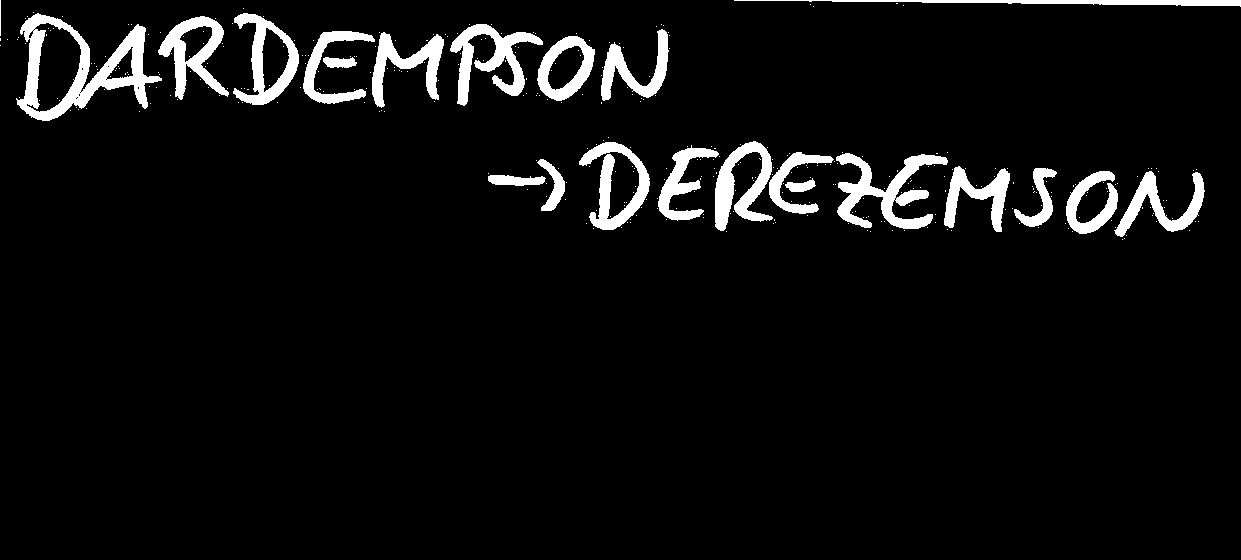 DARDEMPSON
→ DEREZEMSON